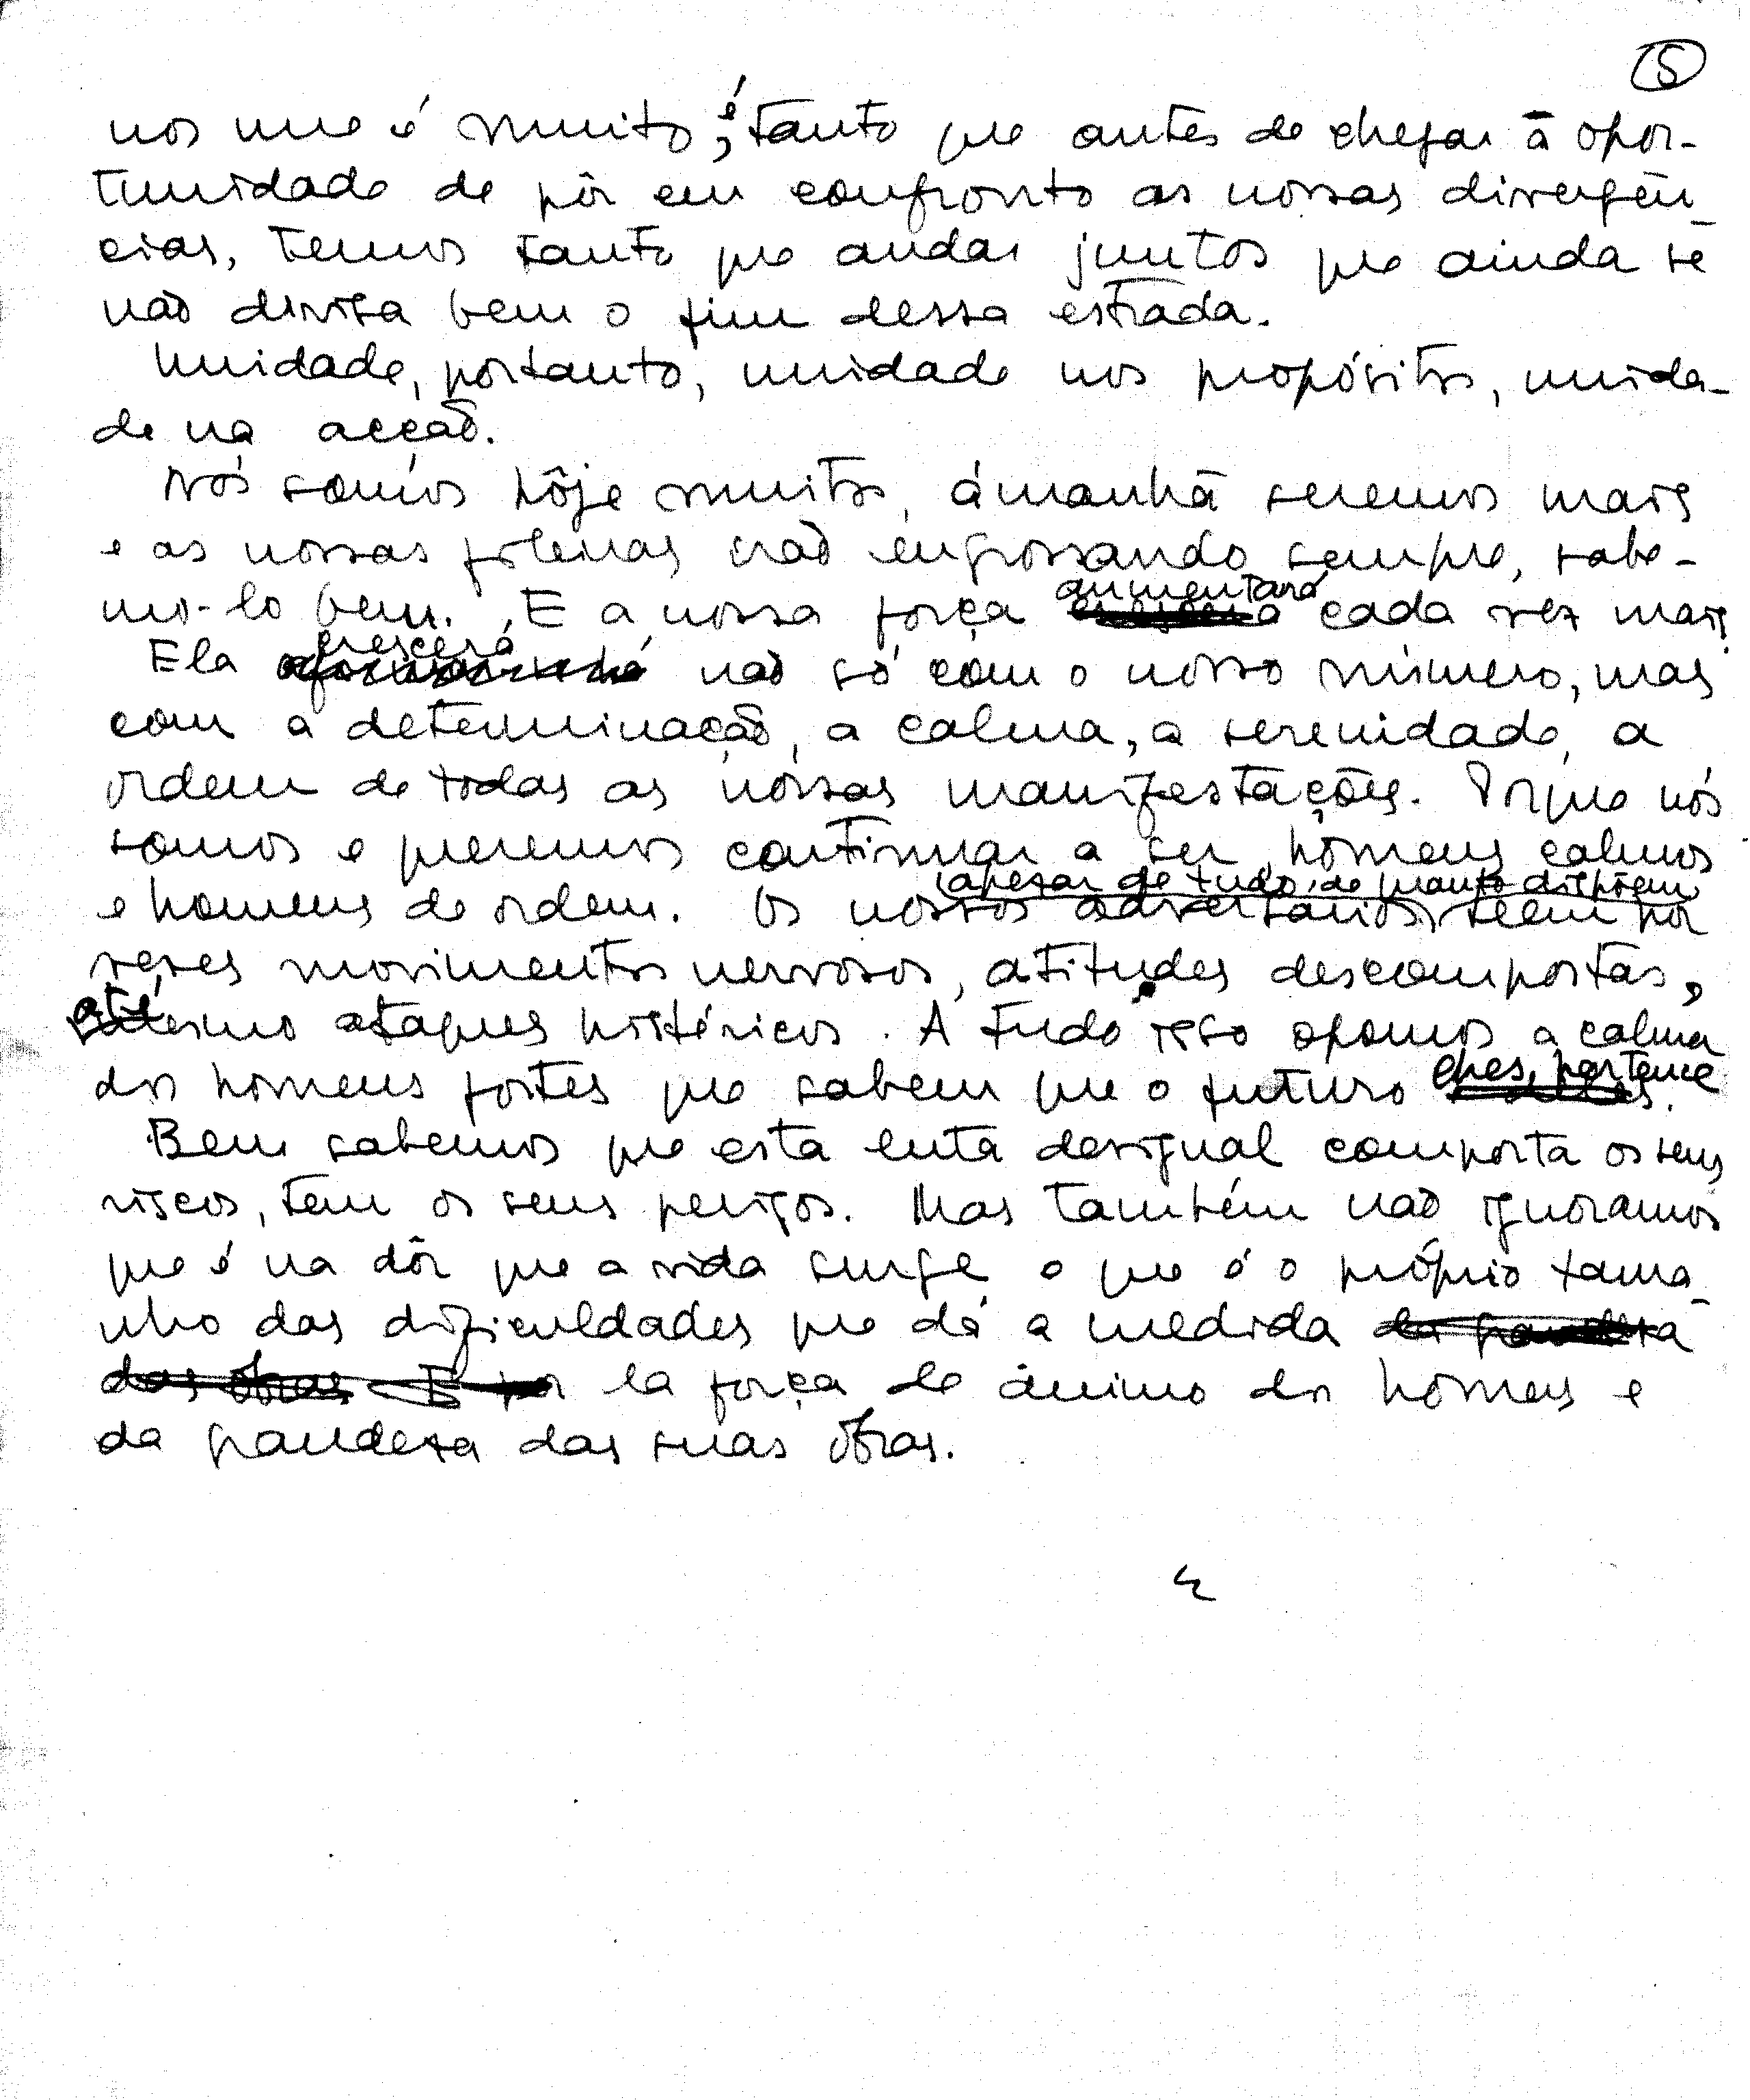 5
nos une é muito; é tanto que antes de chegar à opor-
tunidade de pôr em confronto as nossas divergên-
cias, temos tanto que andar juntos que ainda se
não divisa bem o fim dessa estrada.
Unidade, portanto, unidade nos propósitos, unida-
de na acção.
Nós somos hôje muitos, ámanhã seremos mais
e as nossas fileiras irão engrossando sempre, sabe-
mo-lo bem. E a nossa força aumentará cada vez mais.
Ela crescerá não só com o nosso número, mas
com a determinação, a calma, a serenidade, a
ordem de todas as nossas manifestações. Porque nós
somos e queremos continuar a ser homens calmos
e homens de ordem. Os nossos adversários, apesar de tudo de quanto dispõem, teem por
vezes movimentos nervosos, atitudes descompostas,
até mesmo ataques histéricos. A tudo isso opomos a calma
dos homens fortes que sabem que o futuro lhes pertence.
Bem sabemos que esta luta desigual comporta os seus
riscos, tem os seus perigos. Mas também não ignoramos
que é na dôr que a vida surge e que é o próprio tama-
nho das dificuldades que dá a medida da grandeza
das obras da força de ânimo dos homens e
da grandeza das suas obras.